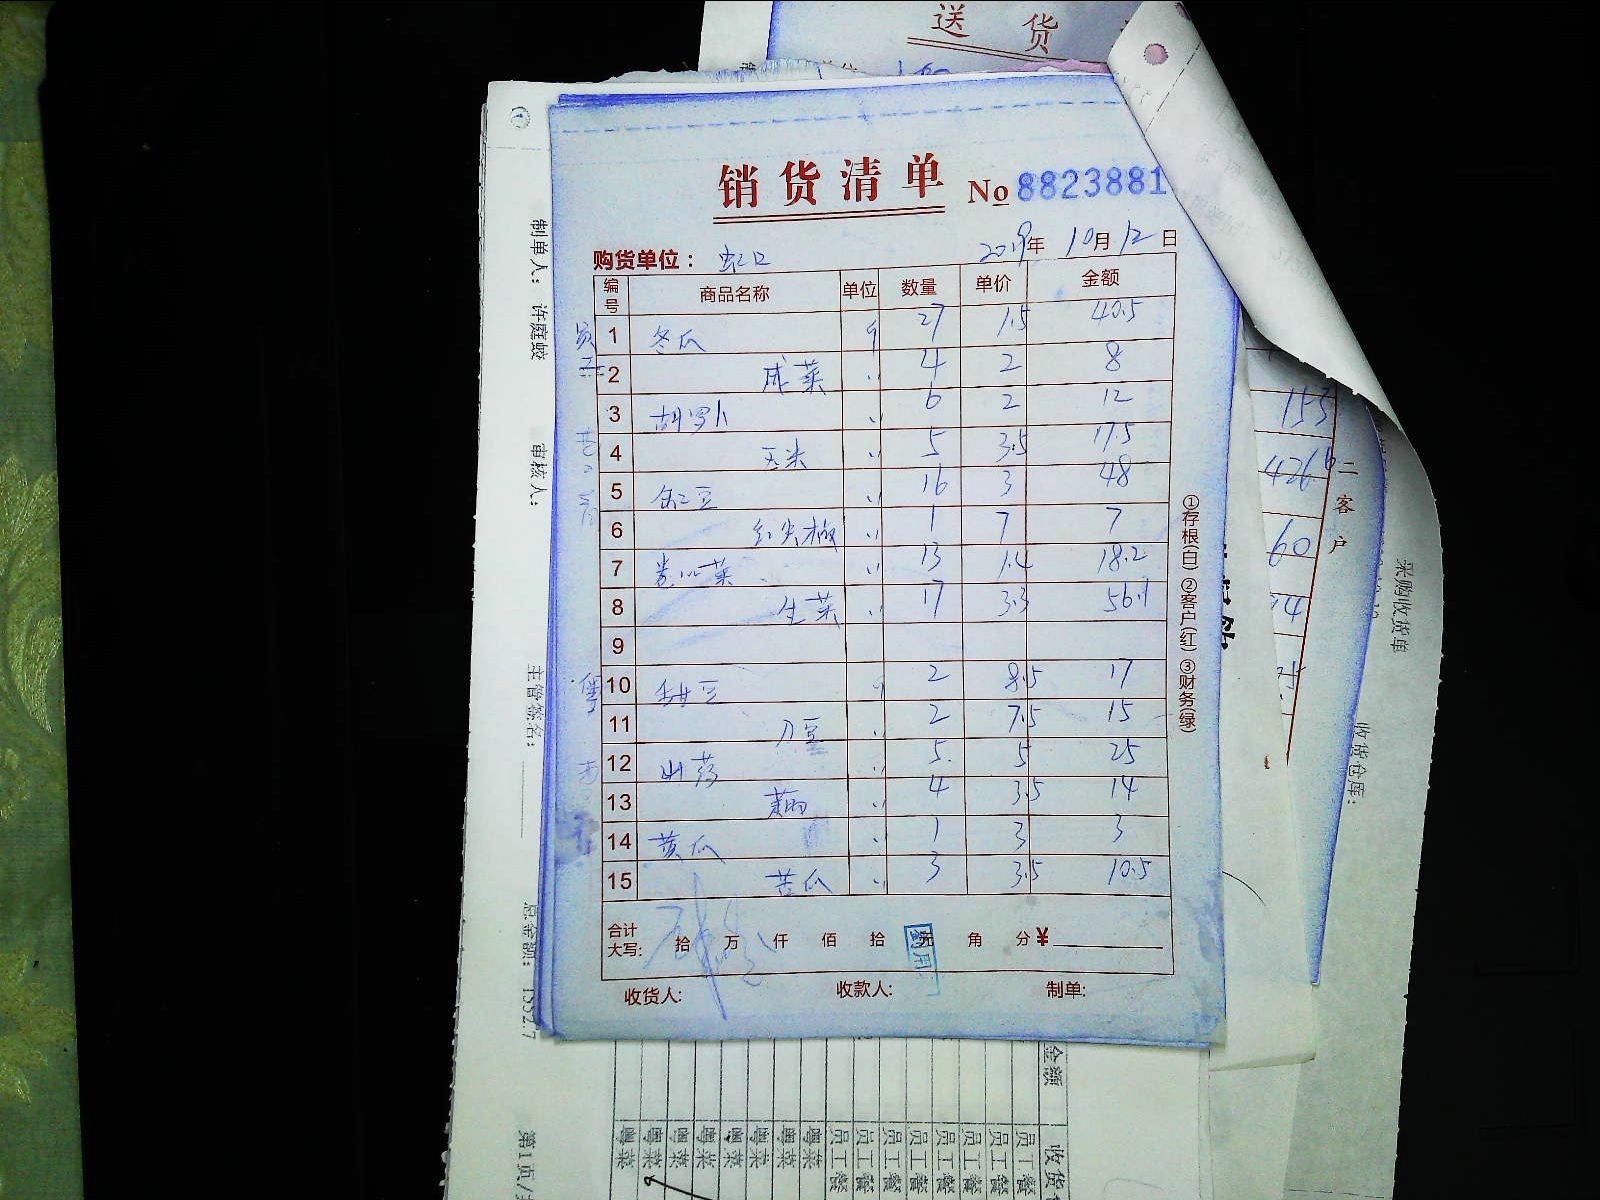 送 货
销货清单 No 8823881
购货单位： 虹口 2019年 10月 12日
编号 商品名称 单位 数量 单价 金额
1 冬瓜 斤 27 1.5 40.5
2 咸菜 〃 4 2 8
3 胡罗卜 〃 6 2 12
4 玉米 〃 5 3.5 17.5
5 缸豆 〃 16 3 48
6 红尖椒 〃 1 7 7
7 卷心菜 〃 13 1.4 18.2
8 生菜 〃 17 3.3 56.1
9
10 甜豆 2 8.5 17
11 刀豆 〃 2 7.5 15
12 山药 〃 5 5 25
13 〃 4 3.5 14
14 黄瓜 〃 1 3 3
15 苦瓜 〃 3 3.5 10.5
合计
大写： 拾 万 仟 佰 拾 元 角 分 ¥
收货人: 收款人: 制单:
①存根(白) ②客户(红) ③财务(绿)
制单人： 许庭蛟
审核人：
主管签名：
总金额： 1352.7
第1页/
153
426
60
二客户
采购收货单
收货仓库：
金额
收货
员工餐
员工餐
员工餐
员工餐
员工餐
员工餐
员工餐
员工餐
粤菜
粤菜
粤菜
粤菜
粤菜
粤菜
粤菜
粤菜